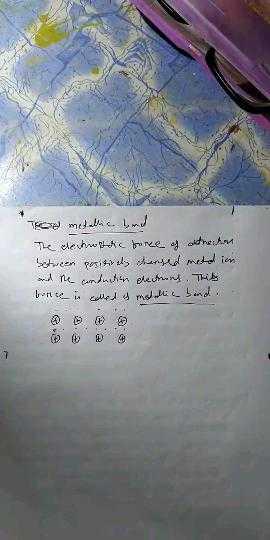 metallic bond
The electrostatic force of attraction
between positively charged metal ion
and the conduction electrons. This
force is called is metallic bond.
+ + + +
+ + + +